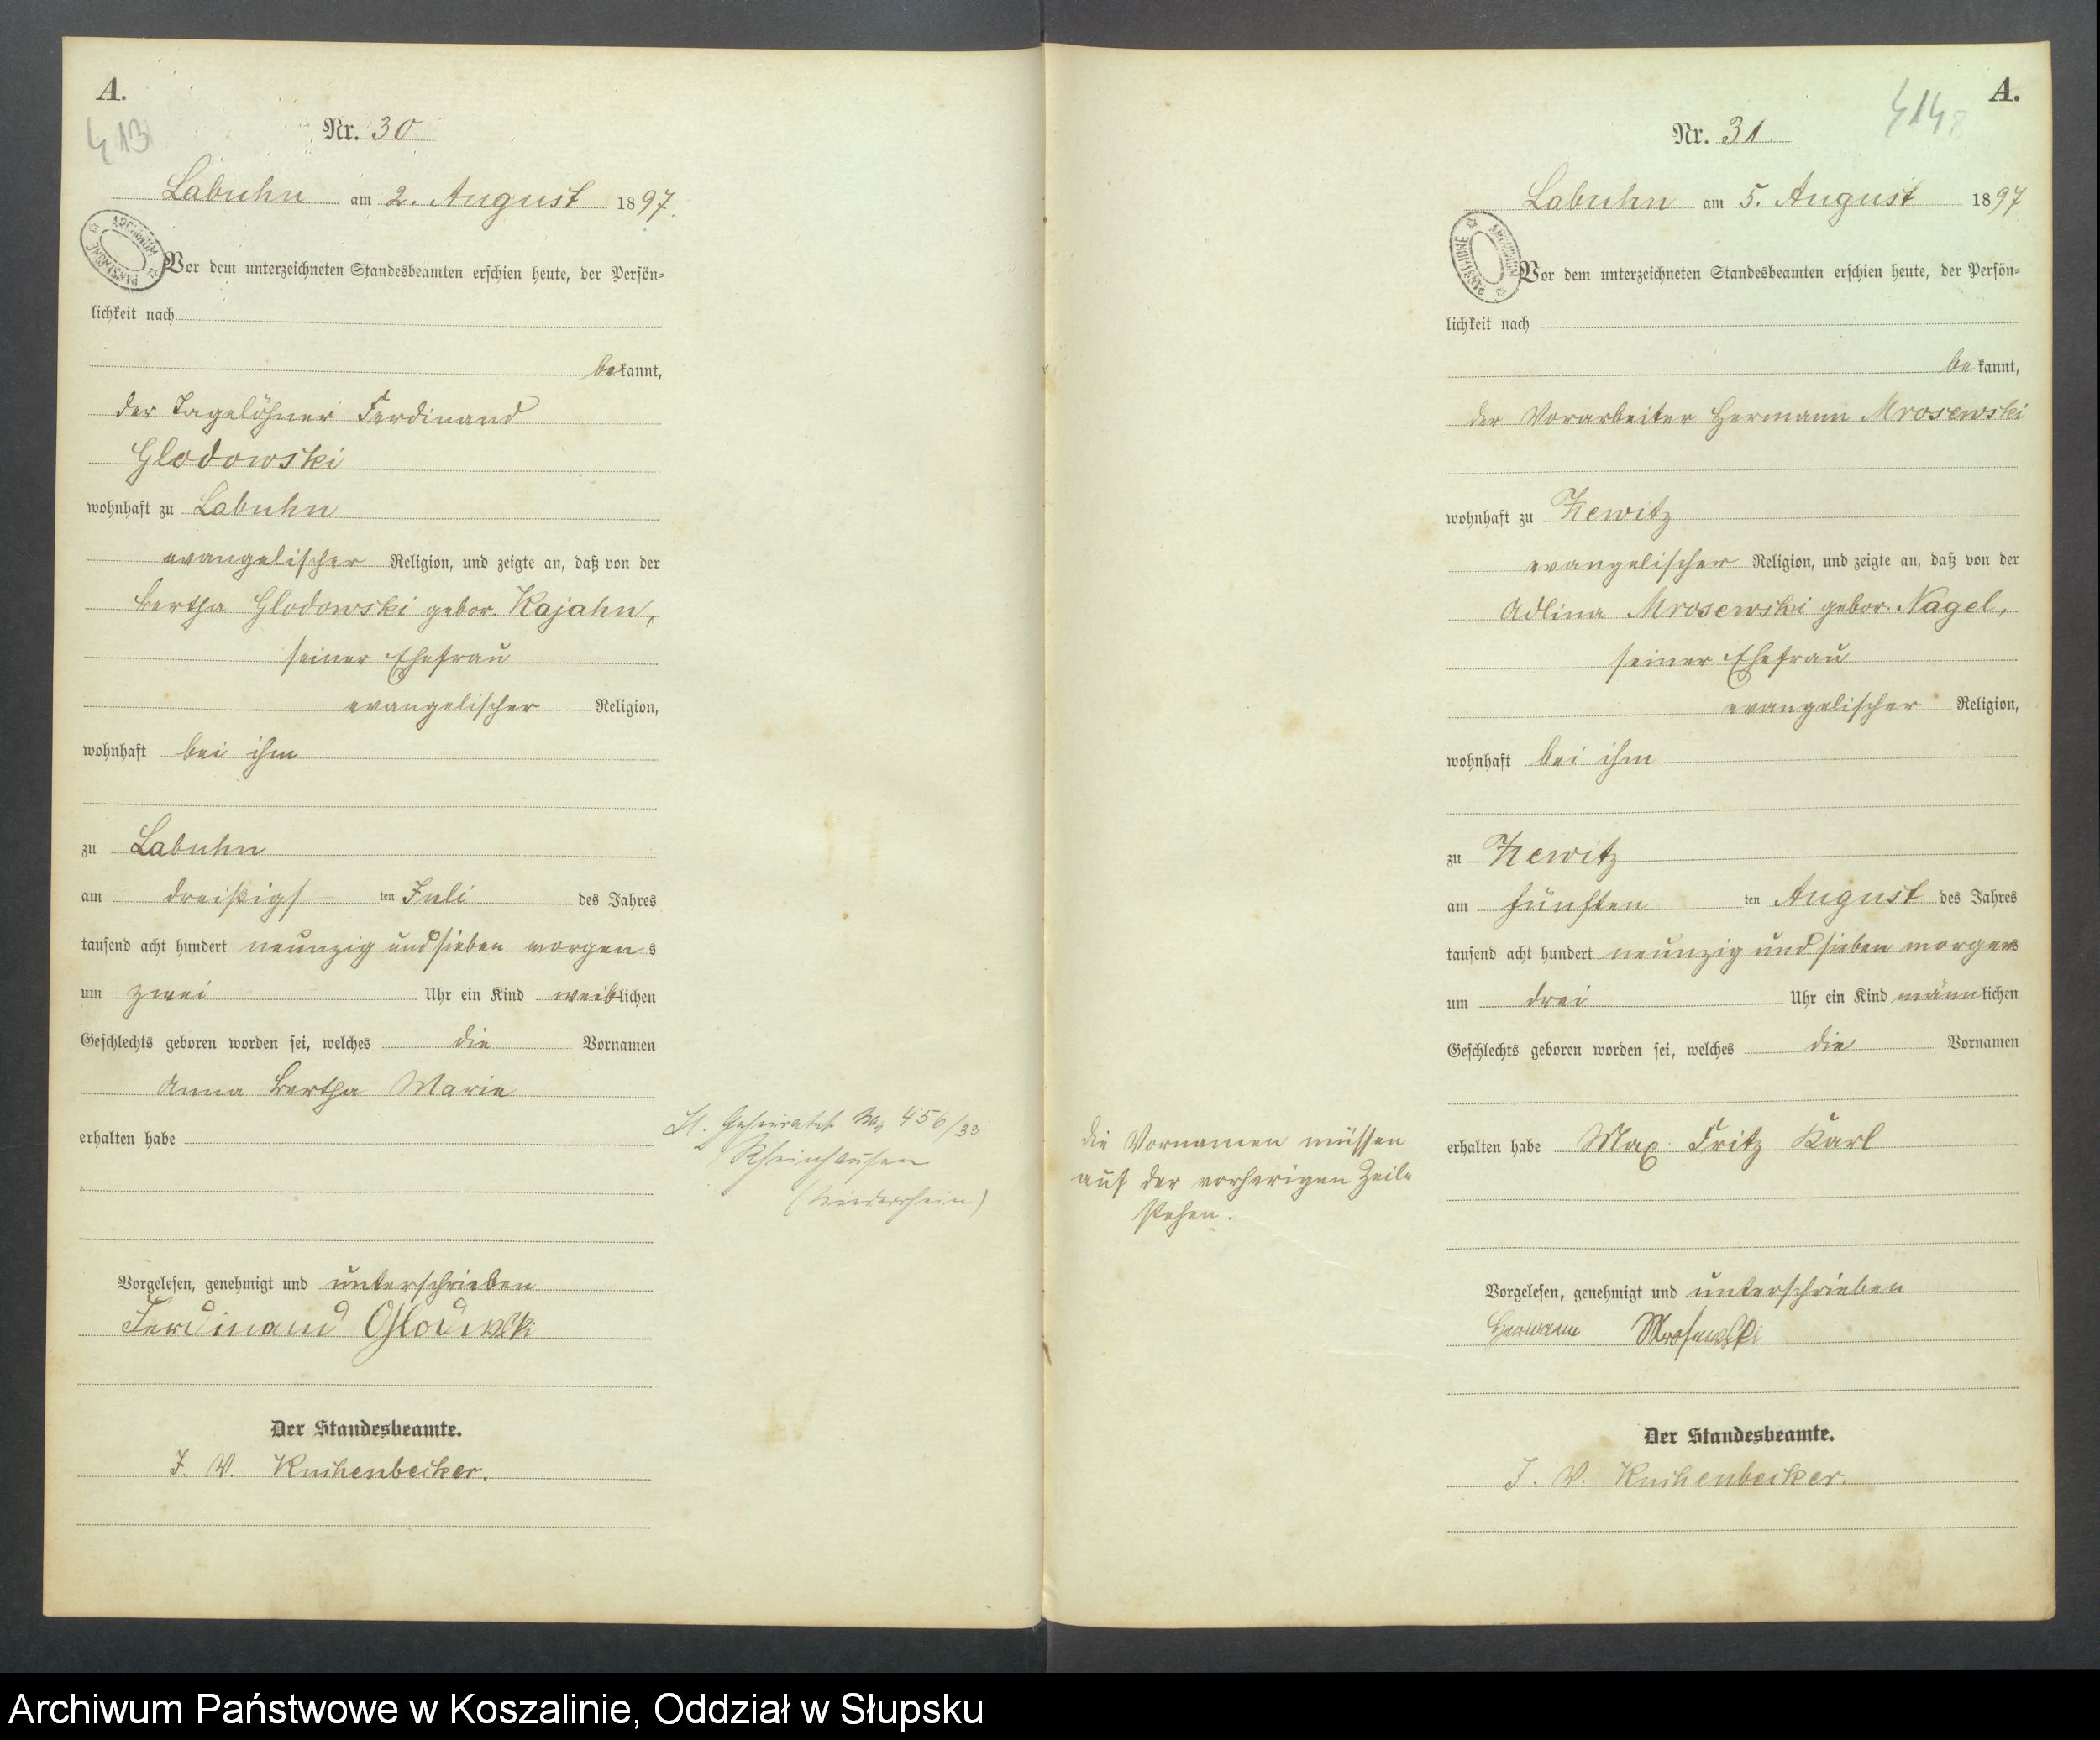 A.
413
Nr. 30
Labuhn am 2. August 1897.
ARCHIWUM PAŃSTWOWE
Vor dem unterzeichneten Standesbeamten erschien heute, der Persön-
lichkeit nach
bekannt,
der Tagelöhner Ferdinand
Glodowski
wohnhaft zu Labuhn
evangelischer Religion, und zeigte an, daß von der
Bertha Glodowski gebor. Kajahn,
seiner Ehefrau
evangelischer Religion,
wohnhaft bei ihm
zu Labuhn
am dreißigsten Juli des Jahres
tausend acht hundert neunzig und sieben morgens
um zwei Uhr ein Kind weiblichen
Geschlechts geboren worden sei, welches die Vornamen
Anna Bertha Marie
erhalten habe
Geheiratet Nr. 456/33
Rheinhausen
(Niederrhein)
Vorgelesen, genehmigt und unterschrieben
Ferdinand Glodowski
Der Standesbeamte.
J. V. Kuchenbecker.
A.
414
Nr. 31.
Labuhn am 5. August 1897
ARCHIWUM PAŃSTWOWE
Vor dem unterzeichneten Standesbeamten erschien heute, der Persön-
lichkeit nach
bekannt,
der Vorarbeiter Hermann Mrosewski
wohnhaft zu Zewitz
evangelischer Religion, und zeigte an, daß von der
Adline Mrosewski gebor. Nagel,
seiner Ehefrau
evangelischer Religion,
wohnhaft bei ihm
zu Zewitz
am fünften ten August des Jahres
tausend acht hundert neunzig und sieben morgens
um drei Uhr ein Kind männlichen
Geschlechts geboren worden sei, welches die Vornamen
erhalten habe Max Fritz Karl
die Vornamen müssen
auf der vorherigen Zeile
stehen.
Vorgelesen, genehmigt und unterschrieben
Hermann Mrosewski
Der Standesbeamte.
J. V. Kuchenbecker.
Archiwum Państwowe w Koszalinie, Oddział w Słupsku